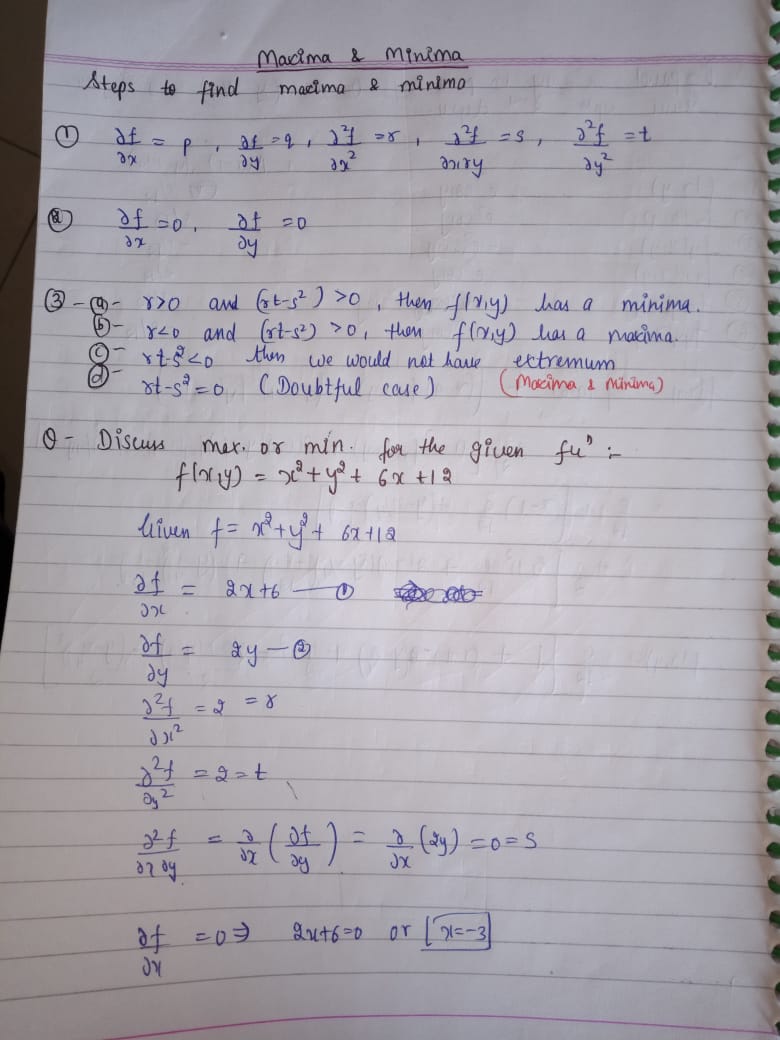 Maxima & Minima
Steps to find maxima & minima
① ∂f/∂x = p, ∂f/∂y = q, ∂²f/∂x² = r, ∂²f/∂x∂y = s, ∂²f/∂y² = t
② ∂f/∂x = 0, ∂f/∂y = 0
③ - ⓐ - r>0 and (rt-s²) >0, then f(x,y) has a minima.
ⓑ - r<0 and (rt-s²) >0, then f(x,y) has a maxima.
ⓒ - rt-s²<0 then we would not have extremum
ⓓ - rt-s²=0 (Doubtful case) (Maxima & Minima)
Q - Discuss max. or min. for the given fuⁿ :-
f(x,y) = x²+y²+ 6x +12
Given f = x²+y²+ 6x+12
∂f/∂x = 2x+6 — ①
∂f/∂y = 2y — ②
∂²f/∂x² = 2 = r
∂²f/∂y² = 2 = t
∂²f/∂x∂y = ∂/∂x (∂f/∂y) = ∂/∂x (2y) = 0 = S
∂f/∂x = 0 ⇒ 2x+6=0 or x=-3